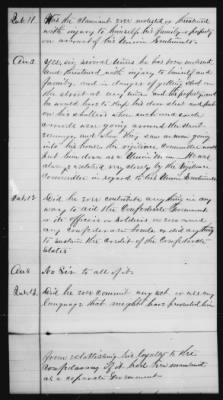 Int. 11. Was the claimant ever molested or threatened
with injury to himself his family or property
on account of his Union Sentiments.
Ans Yes, sir, several times he has been molested
and threatened with injury to himself and
family, and in danger of getting shot in
the street at any time and his property and
he would have to keep his door shut and put
on his shutters when such and such
crowds were going around the streets
and when they saw a man going
into his house the vigilance committee would
put him down as a Union Man. He was
always watched very closely by the Vigilance
Committee in regard to his Union Sentiments
Int. 12 Did he ever contribute anything in any
way to aid the Confederate Government
or its officers or soldiers or ever send
any Confederate bonds or did anything
to sustain the credit of the Confederate
States
Ans No Sir to all of it.
Int. 13. Did he ever commit any act or use any
language that might have prevented him
from establishing his loyalty to the
Confederacy if it had been maintained
as a separate Government